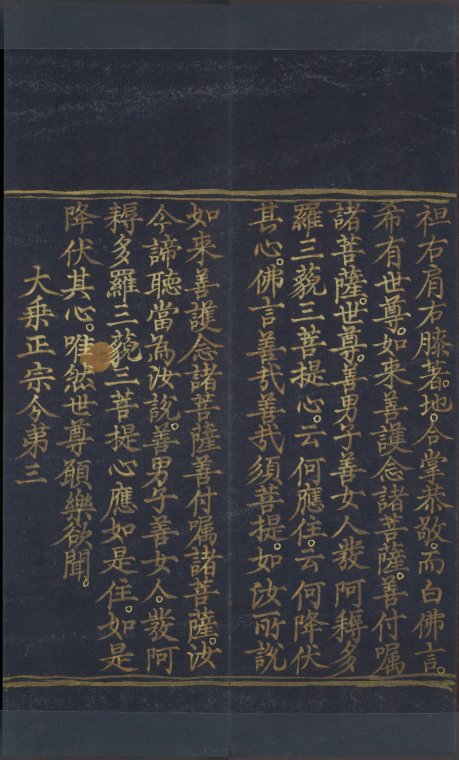 袒右肩右膝著地。合掌恭敬。而白佛言。
希有世尊。如来善護念諸菩薩。善付囑
諸菩薩。世尊。善男子善女人發阿耨多
羅三藐三菩提心。云何應住。云何降伏
其心。佛言善哉善哉須菩提。如汝所說
如来善護念諸菩薩善付囑諸菩薩。汝
今諦聽當為汝說。善男子善女人。發阿
耨多羅三藐三菩提心應如是住。如是
降伏其心。唯然世尊願樂欲聞。
大乗正宗分第三